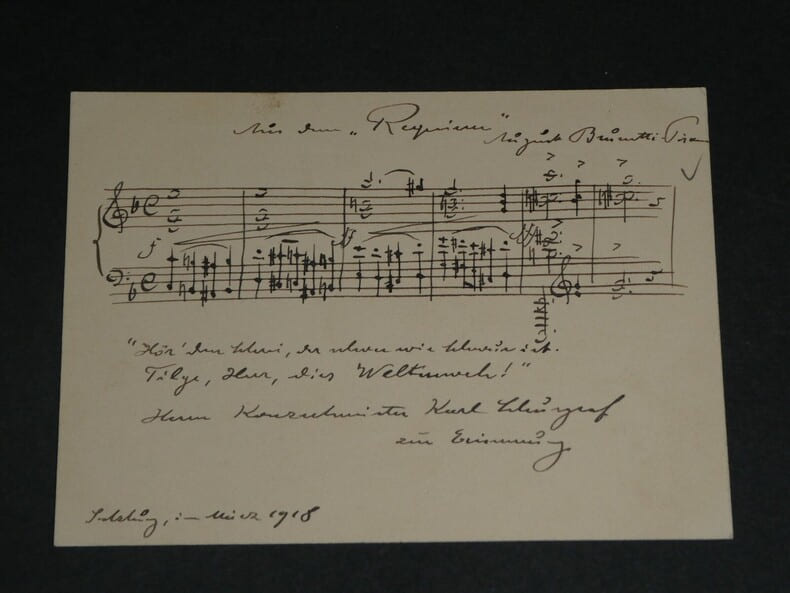 Aus dem „Requiem"
August Brunetti-Pisano
f
ff
fff
"Hör' den Schrei, der schwer wie
Tilge, Herr, dies Weltenweh!"
Herrn Konzertmeister Karl Schürgraf
zur Erinnerung
Salzburg, im März 1918